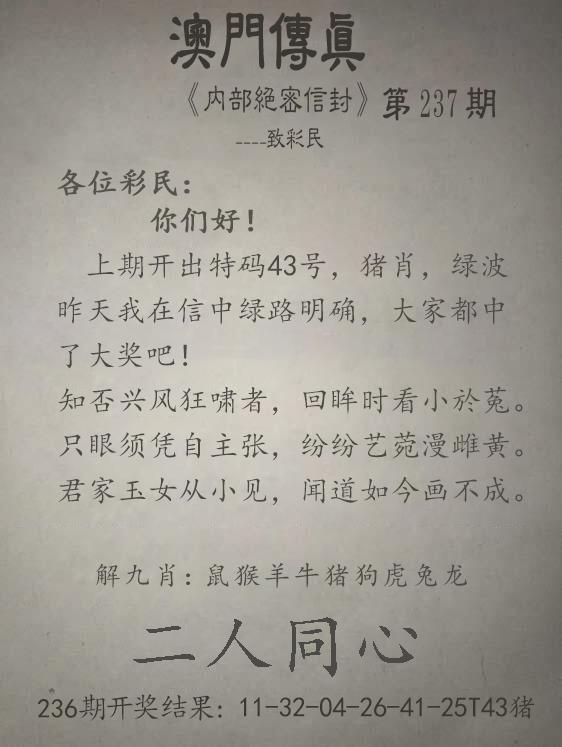 澳門傳眞
《内部絕密信封》第237期
----致彩民
各位彩民：
你们好！
上期开出特码43号，猪肖，绿波
昨天我在信中绿路明确，大家都中
了大奖吧！
知否兴风狂啸者，回眸时看小於菟。
只眼须凭自主张，纷纷艺苑漫雌黄。
君家玉女从小见，闻道如今画不成。
解九肖：鼠猴羊牛猪狗虎兔龙
二人同心
236期开奖结果：11-32-04-26-41-25T43猪